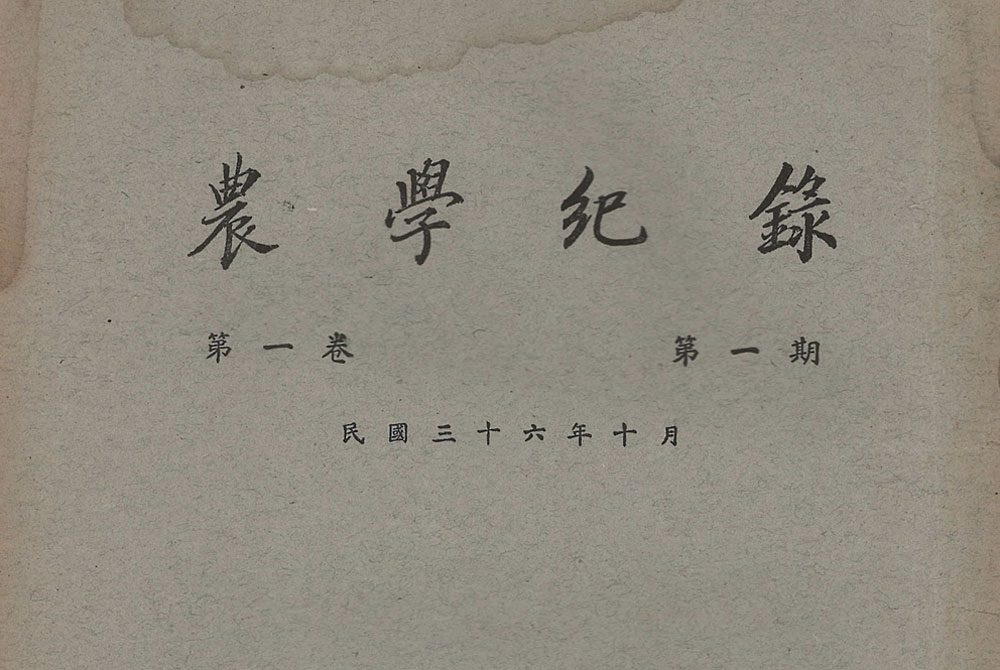 農學紀錄
第一卷 第一期
民國三十六年十月